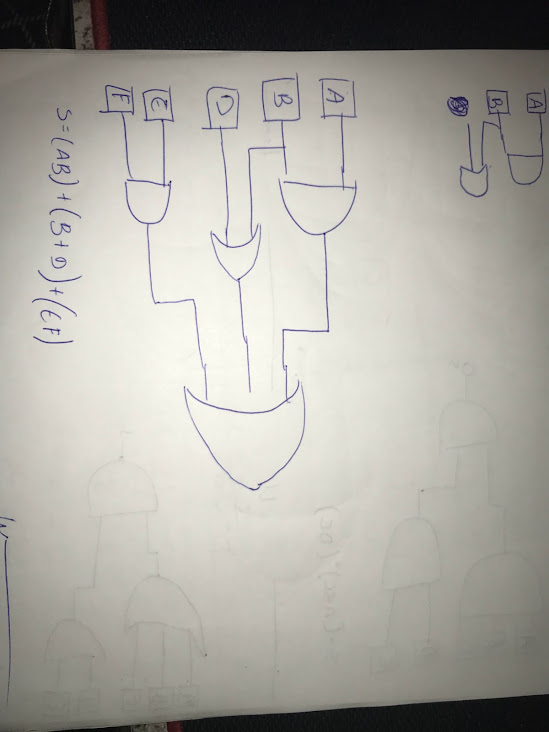 A
B
A
B
D
E
F
S=(AB)+(B+D)+(EF)